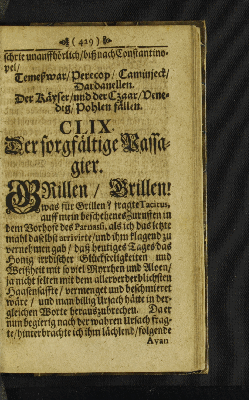 ( 429 )
schrie unauffhörlich/ biß nach Constantino-
pel/
Temeßwar/ Perecop/ Caminjeck/
Dardanellen.
Der Käyser/ und der Czaar/ Vene-
dig/ Pohlen fallen.
CLIX.
Der sorgfältige Passa-
gier.
GRillen/ Grillen!
was für Grillen? fragte Tacitus,
auff mein beschehenes Zuruffen in
dem Vorhofe des Parnassi, als ich das letzte
mahl daselbst arrivirte/ und ihm klagend zu
vernehmen gab/ daß heutiges Tages das
Honig irrdischer Glückseeligkeiten und
Weißheit mit so viel Myrrhen und Aloen/
ja nicht selten mit dem allerverderblichsten/
Haasensaffte/ vermenget und beschmieret
wäre/ und man billig Ursach hätte in der-
gleichen Worte herauszubrechen. Da er
nun begierig nach der wahren Ursach frag-
te/ hinterbrachte ich ihm lächlend/ folgende
Avan